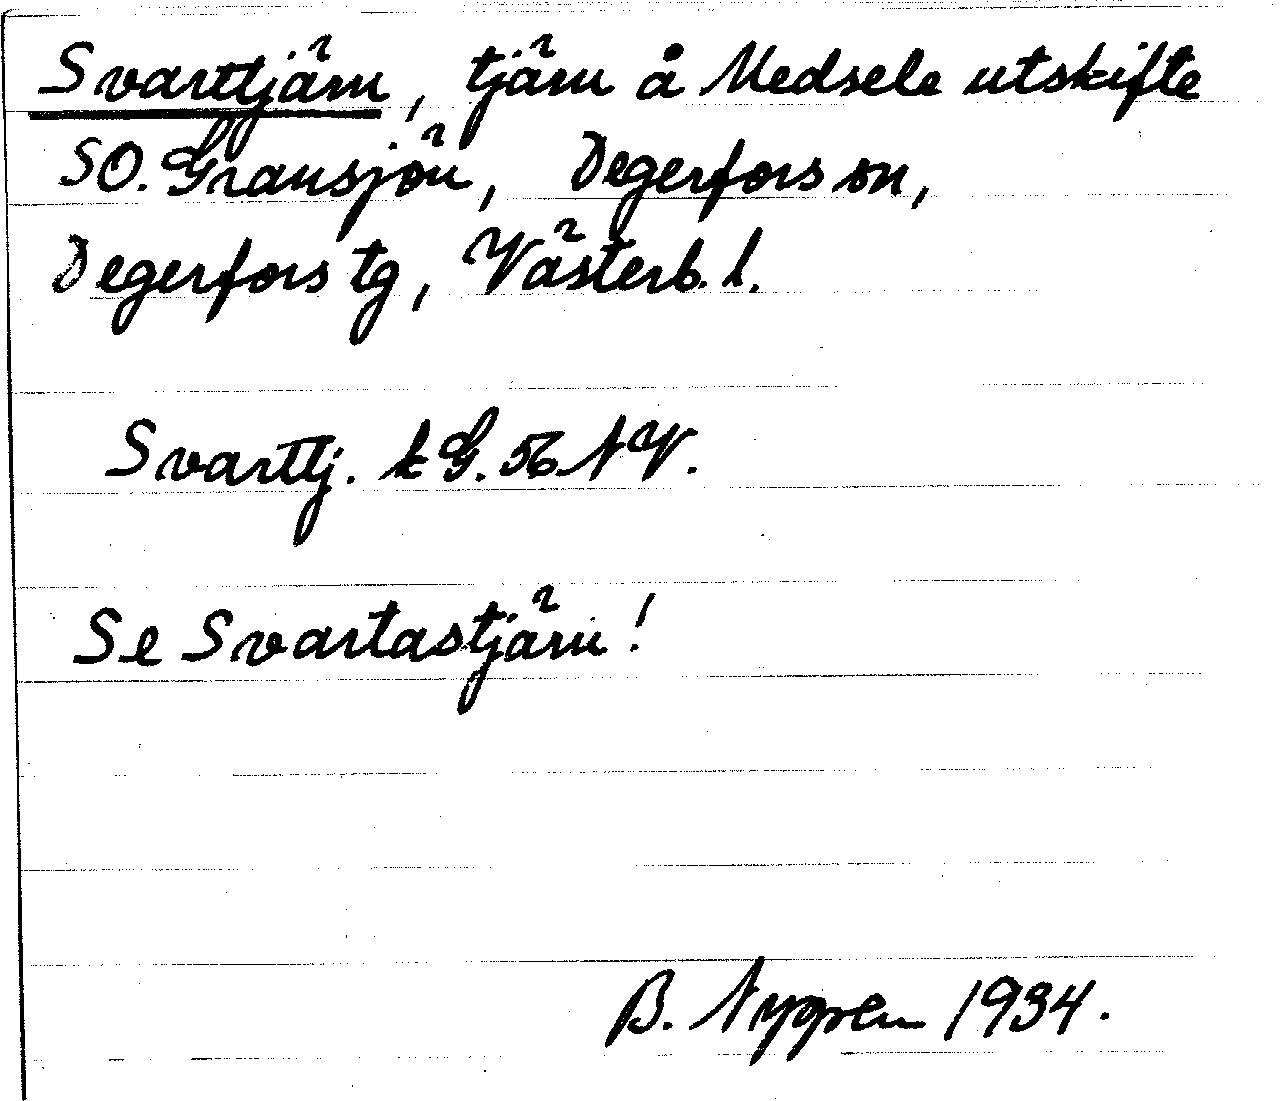 Svarttjärn, tjärn å Medsele utskifte
SO. Gransjön, Degerfors sn,
Degerfors tg, Västerb. l.
Svarttj. k G. 56 NV.
Se Svartastjärn!
B. Nygren 1934.